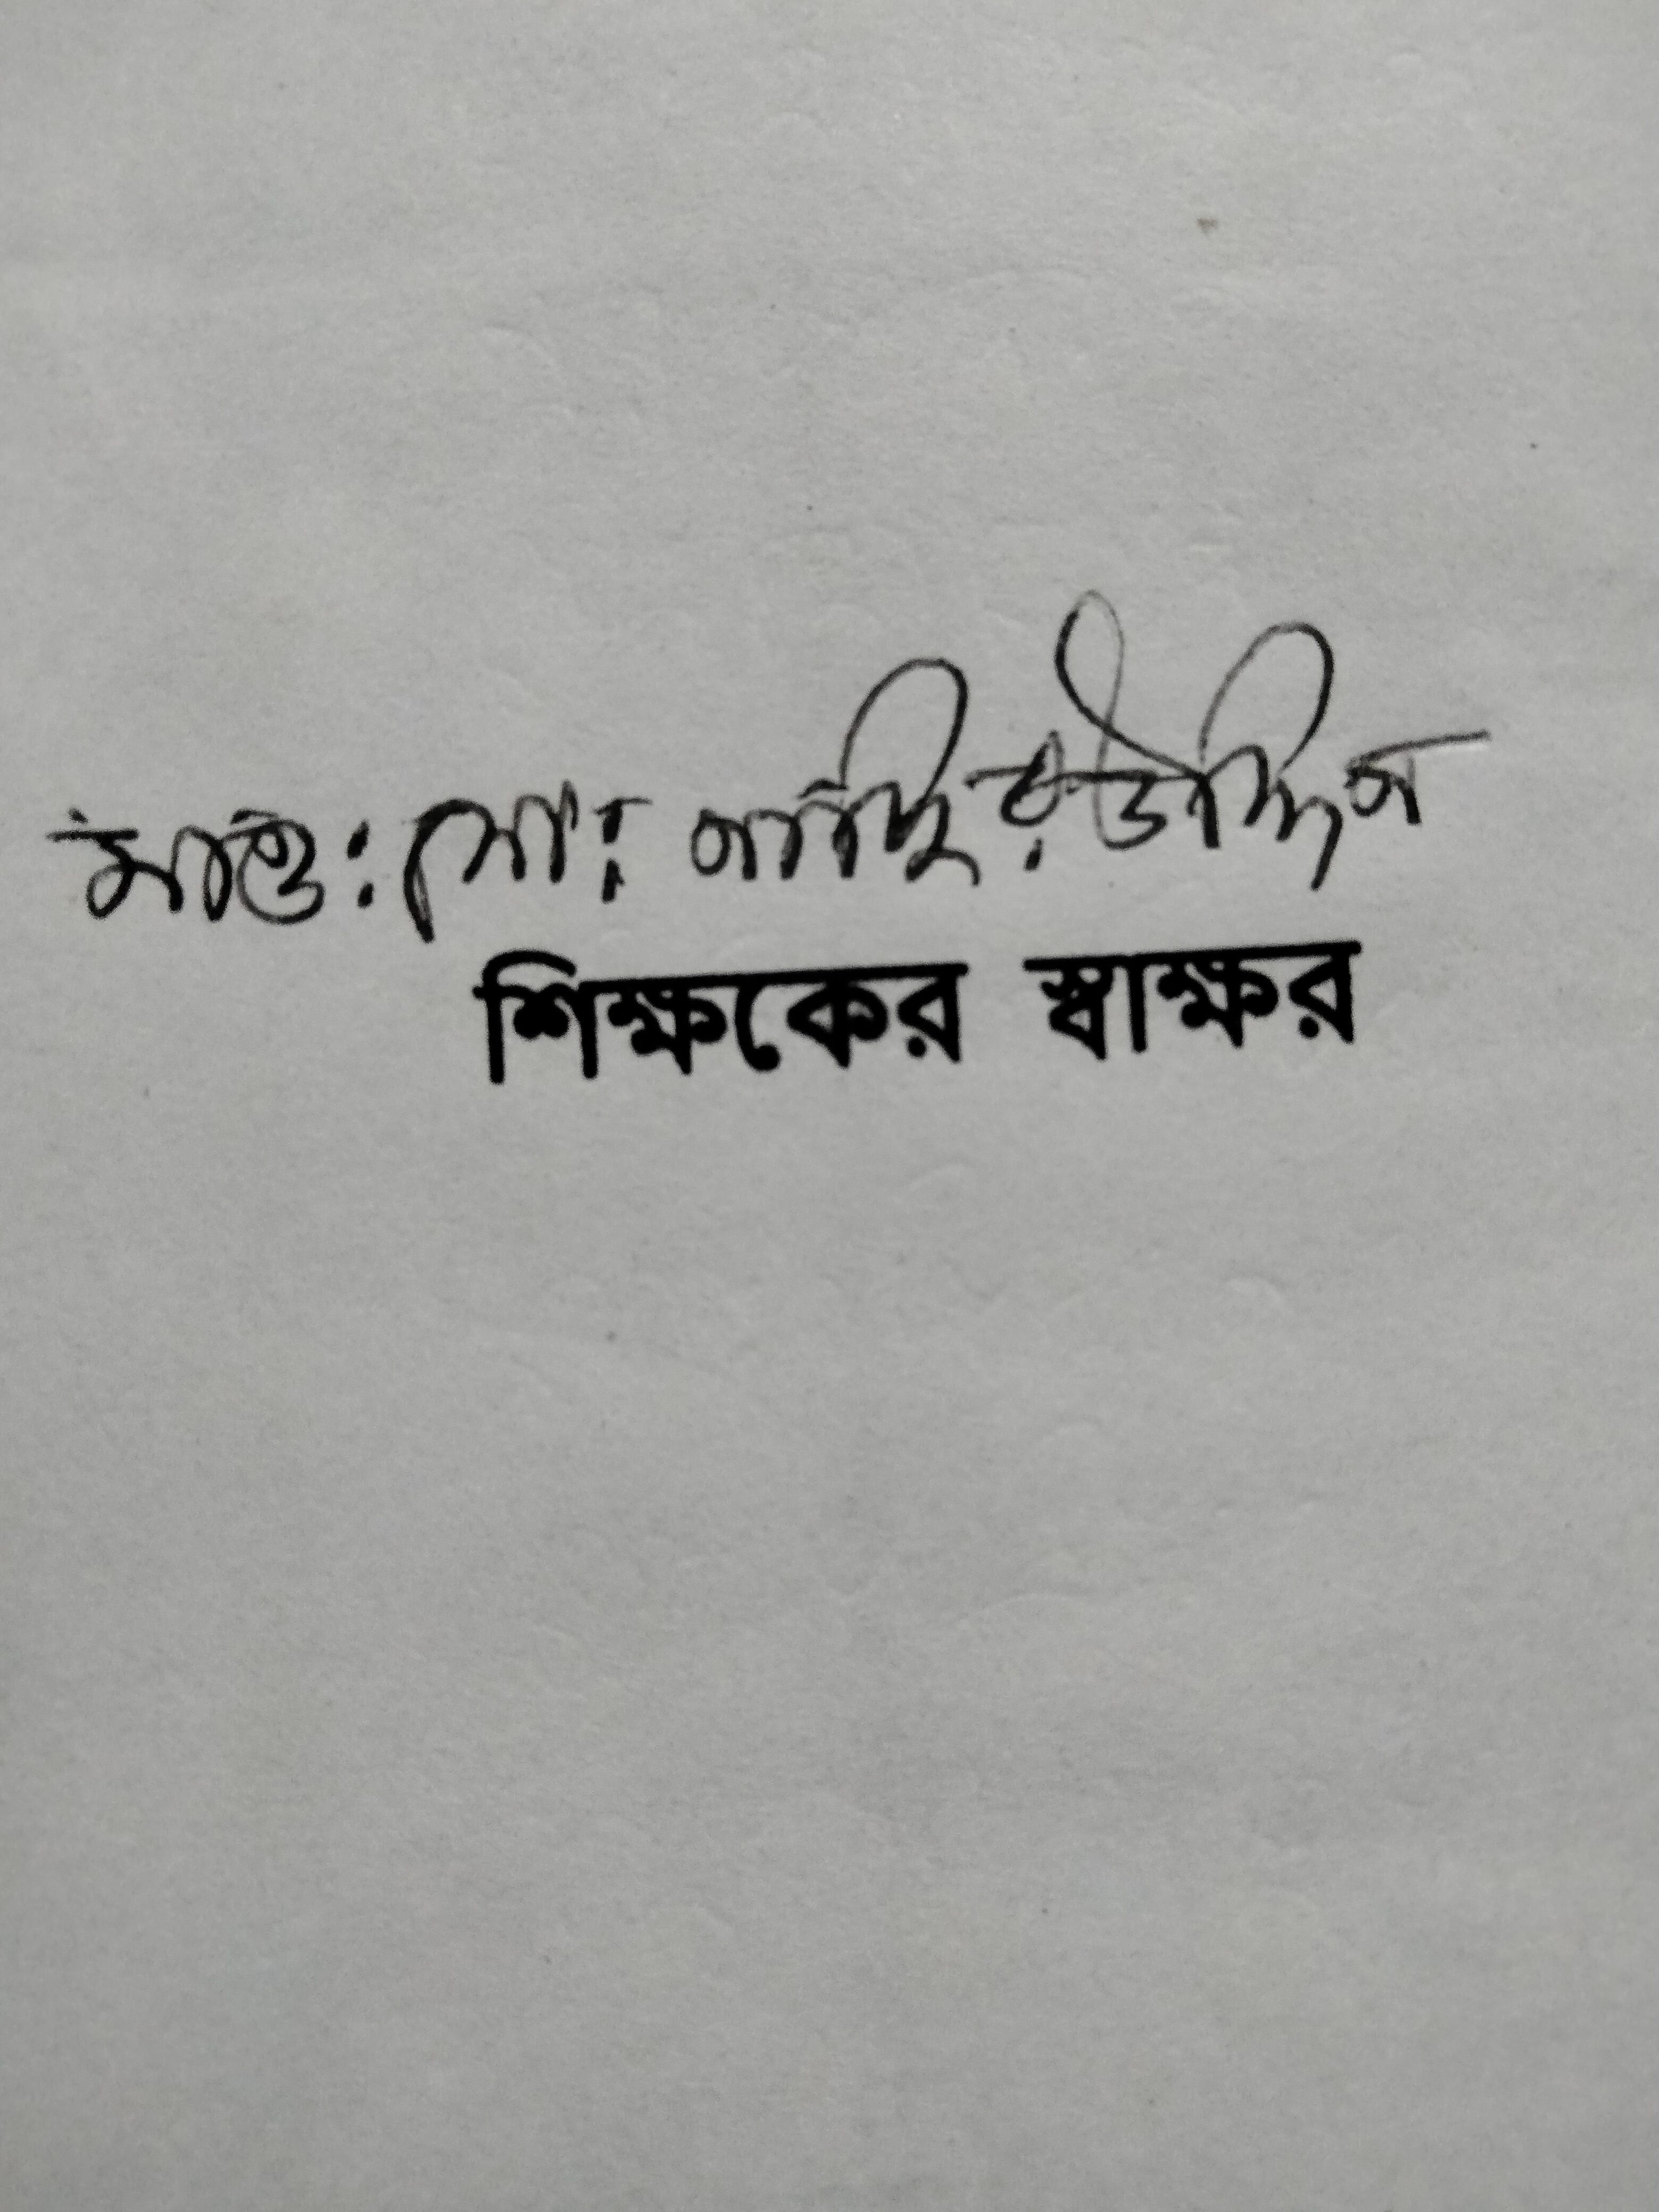 মাও: মো: নাসির উদ্দিন
শিক্ষকের স্বাক্ষর